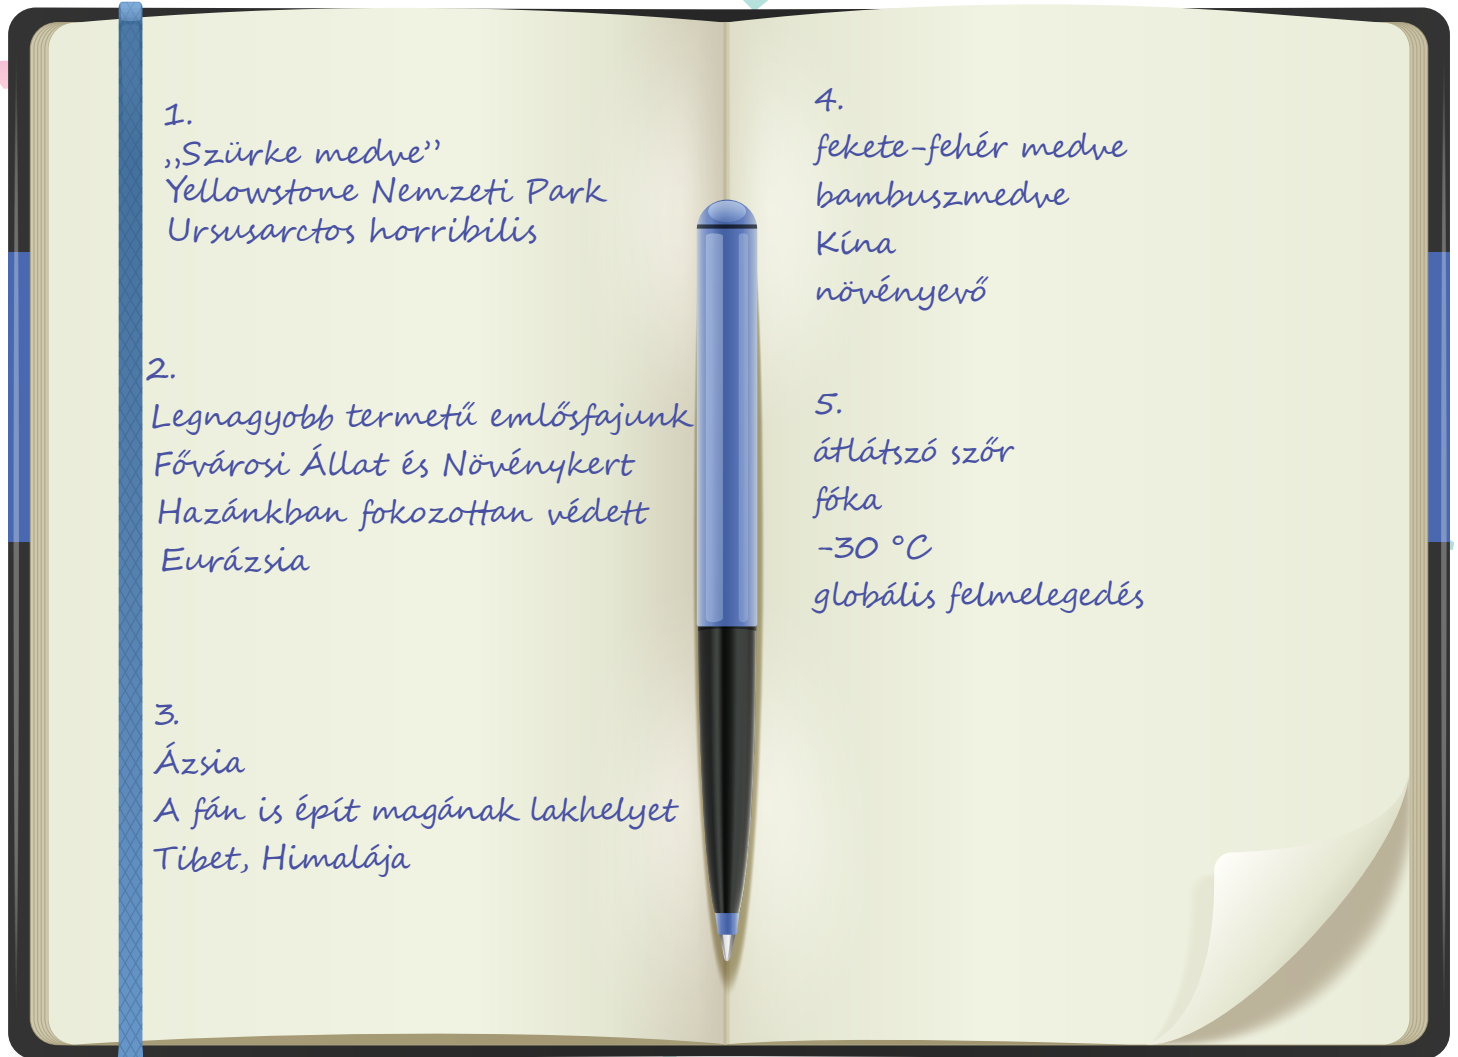 1.
„Szürke medve”
Yellowstone Nemzeti Park
Ursusarctos horribilis
2.
Legnagyobb termetű emlősfajunk
Fővárosi Állat és Növénykert
Hazánkban fokozottan védett
Eurázsia
3.
Ázsia
A fán is épít magának lakhelyet
Tibet, Himalája
4.
fekete-fehér medve
bambuszmedve
Kína
növényevő
5.
átlátszó szőr
fóka
-30 °C
globális felmelegedés